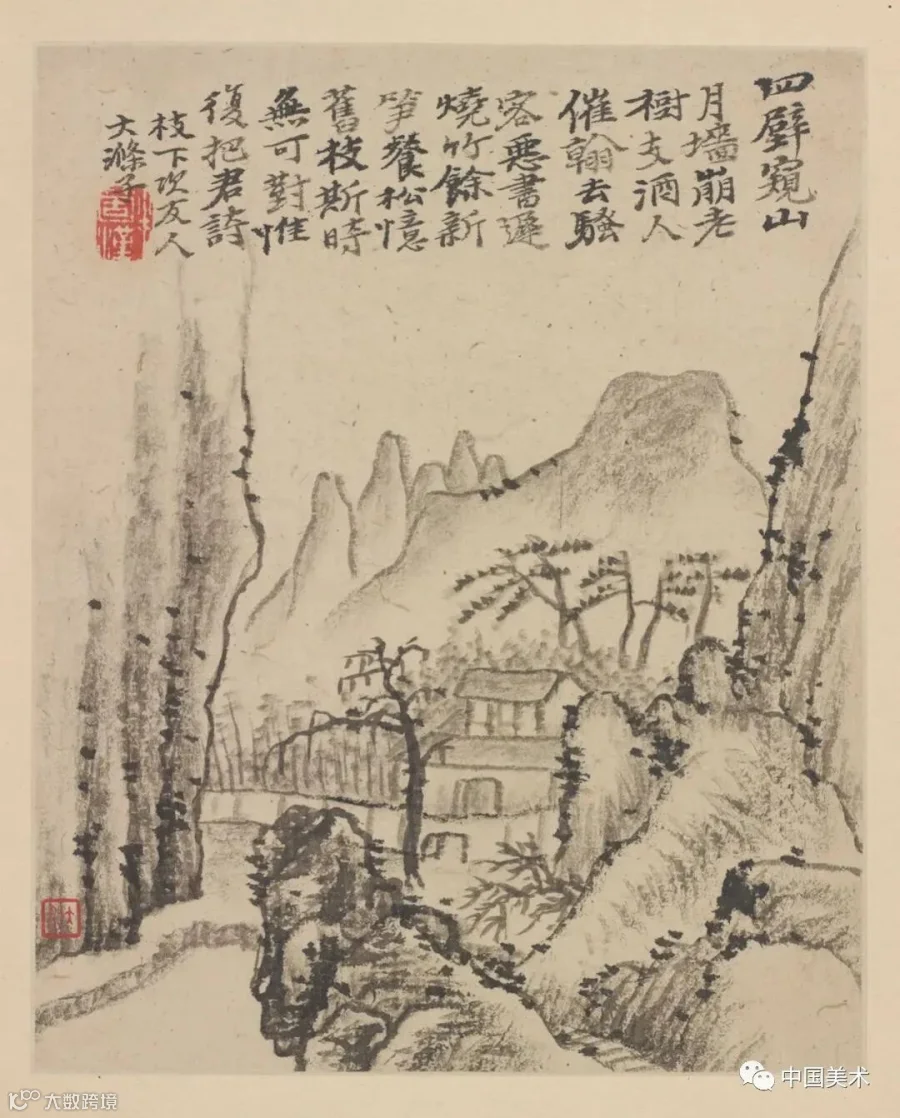 四壁窺山
月墻崩老
樹支酒人
催翰去騷
客惡書遲
燒竹餘新
笋餐松憶
舊枝斯時
無可對惟
復把君詩
枝下次友人
大滌子
中国美术
大数跨境